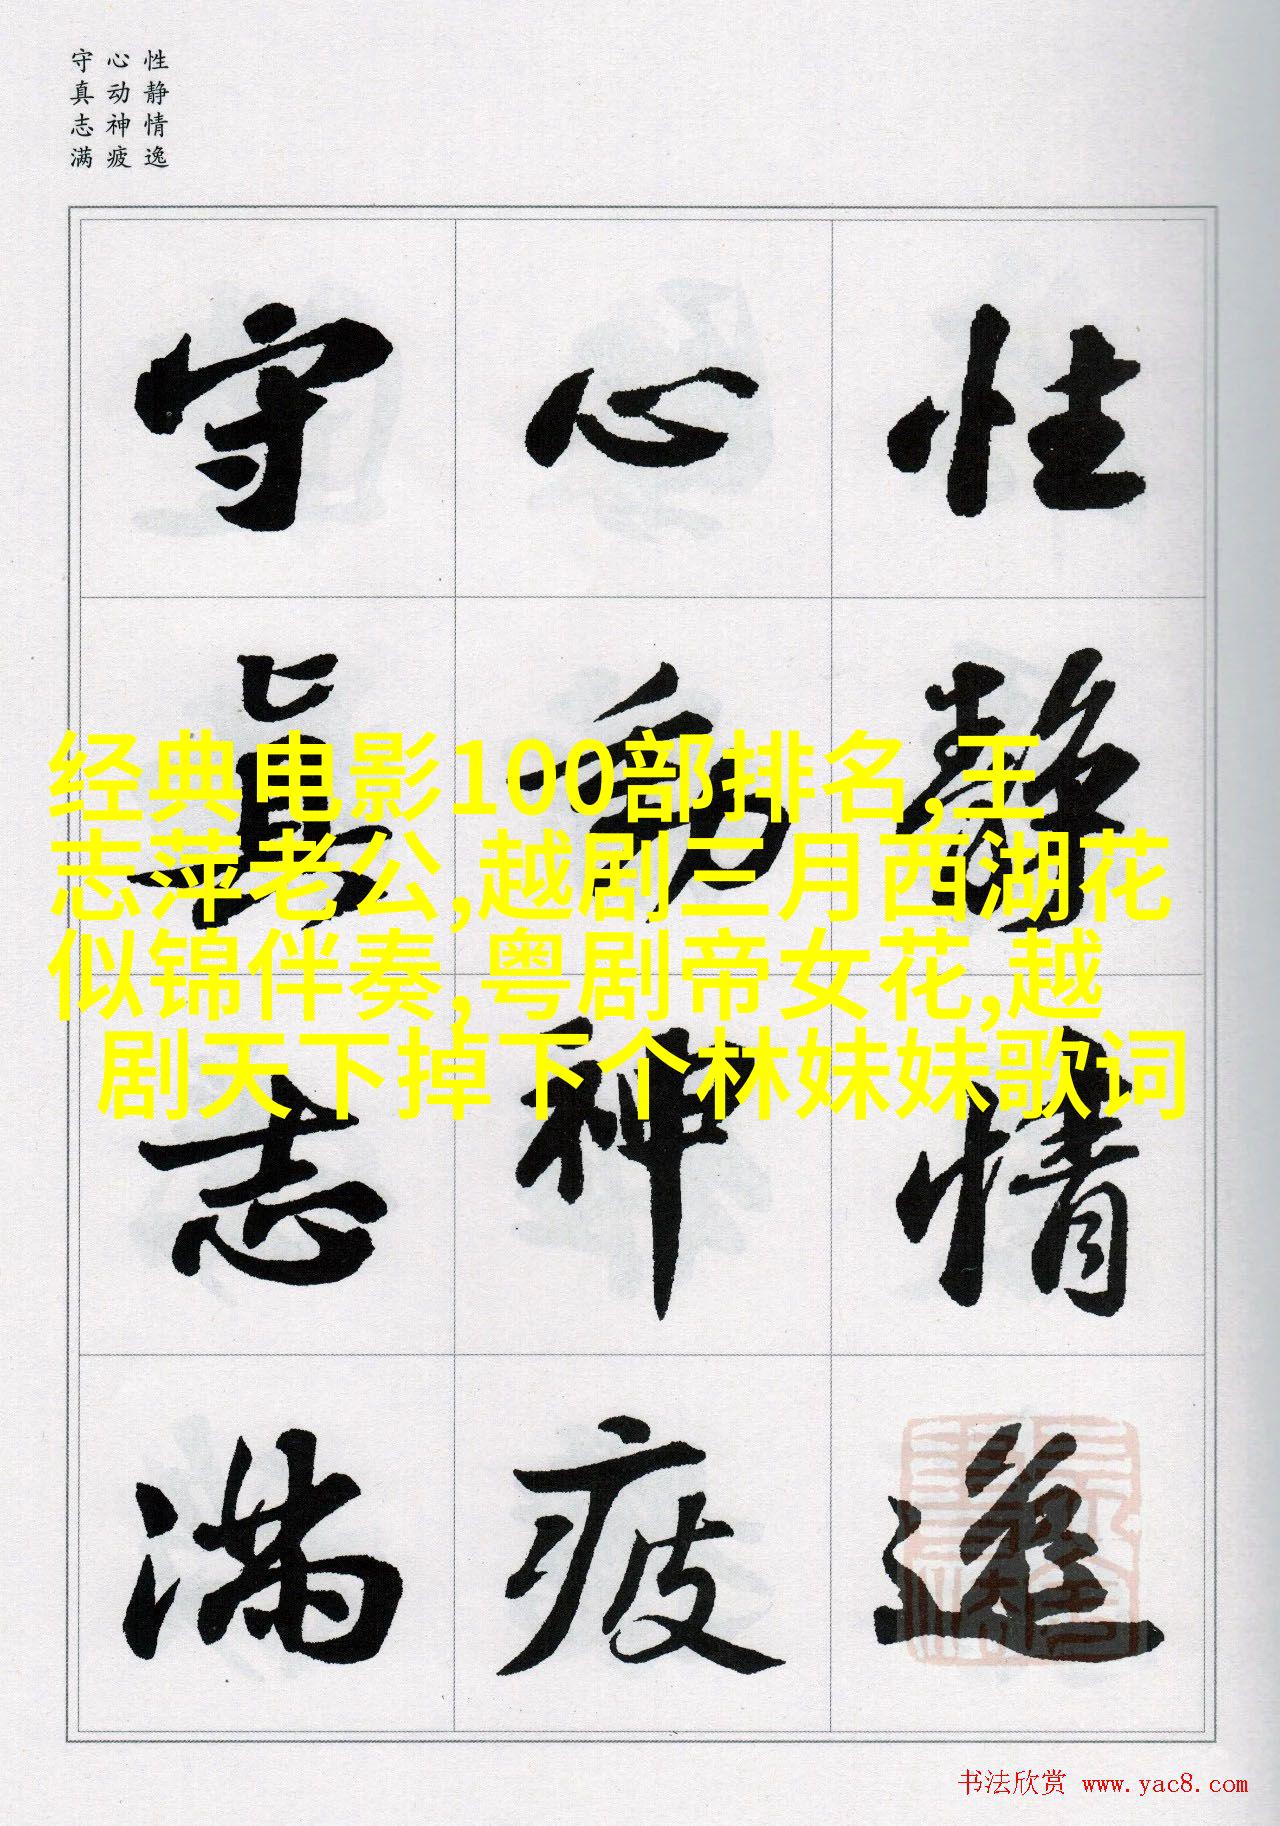 性静情逸
心动神疲
守真志满
性静情逸
心動神疲
守真志满
经典电影100部排名,王
志萍老公,越剧三月西湖花
似锦伴奏,粤剧帝女花,越
剧天下掉下个林妹妹歌词
书法欣赏 www.yac8.com